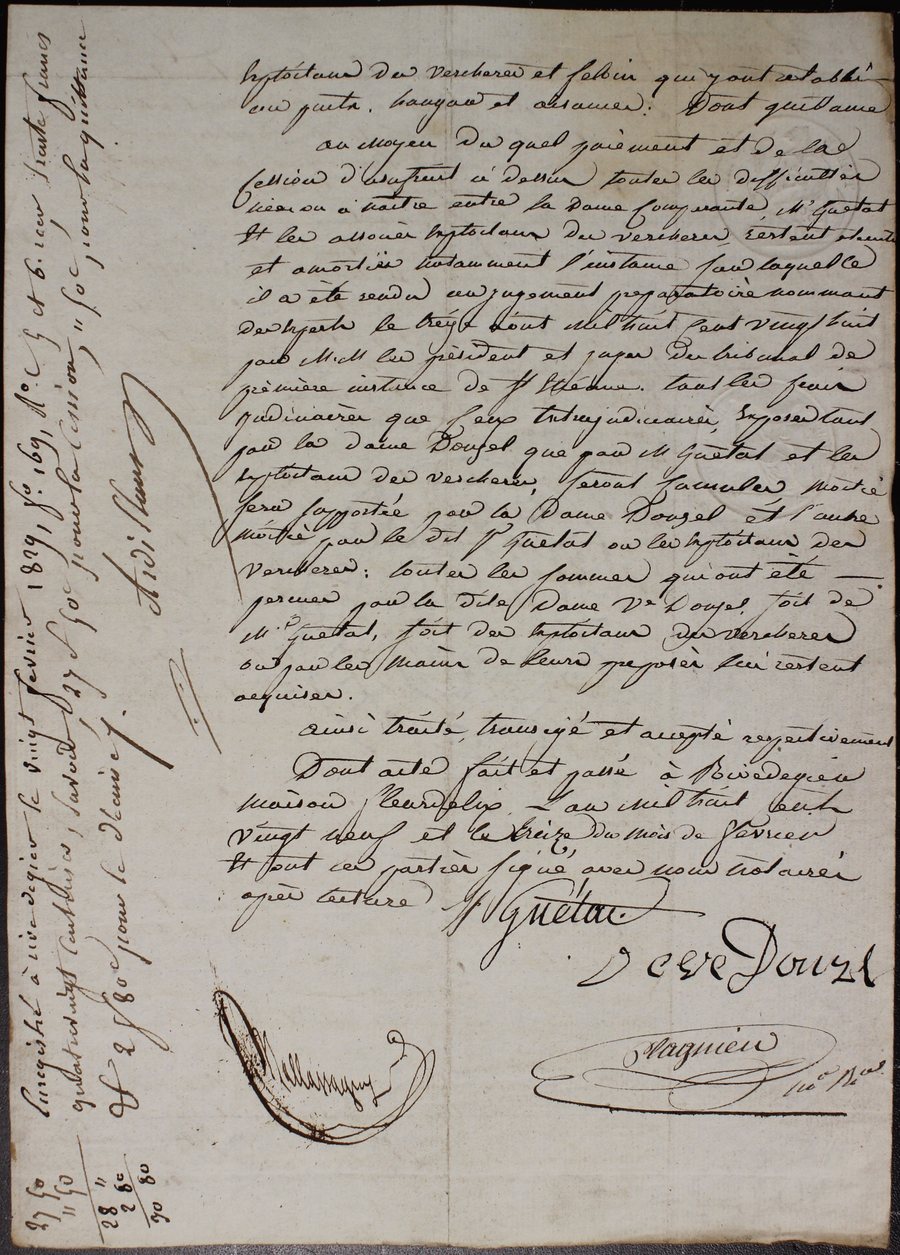 exploitans des vercheres et seloin qui y ont établi
un puits, hangard et Dont quittance
au moyen du quel paiement et de la
Cession d'usufruit ci dessus toutes les difficultés
nées ou à naitre entre la Dame Comparante, Mr Guétat
Et les associés Exploitans des vercheres, restent
et amorties notamment l'instance sur laquelle
il a été rendu un jugement preparatoire nommant
des Experts le août Mil huit Cent Vingt huit
par M.M. les président et juges du tribunal de
première instance de St Etienne. tous les frais
judiciaires que Ceux Extrajudiciaires, Exposés tant
par la dame Donzel que par M Guétat et les
exploitans des vercheres, seront Cumulés moitié
sera supportée par la Dame Donzel et l'autre
moitié par le dit Sr Guétat ou les Exploitans des
vercheres; toutes les sommes qui ont été
percues par la dite Dame Ve Donzel, soit de
Mr Guétat, soit des Exploitans des vercheres
ou par les mains de leurs preposés lui restent
acquises.
ainsi traité, transigé et accepté respectivement
Dont acte fait et passé à Rivedegier
maison fleurdelix, L'an Mil huit cent
vingt neuf et le treize du mois de fevrier
Et ont les parties signé avec nous notaires
après lecture
Guétat
veve Donzel
Vagnien
Enregistré à rivedegier le vingt fevrier 1829, fo 169, Ro C 5 et 6. reçu trente francs
quatrevingt centimes, savoir 27 f 50c pour la Cession, " 50c, pour la quittance
& 2 f 80c pour le décime.
27 50
" 50
28 "
2 80
30 80